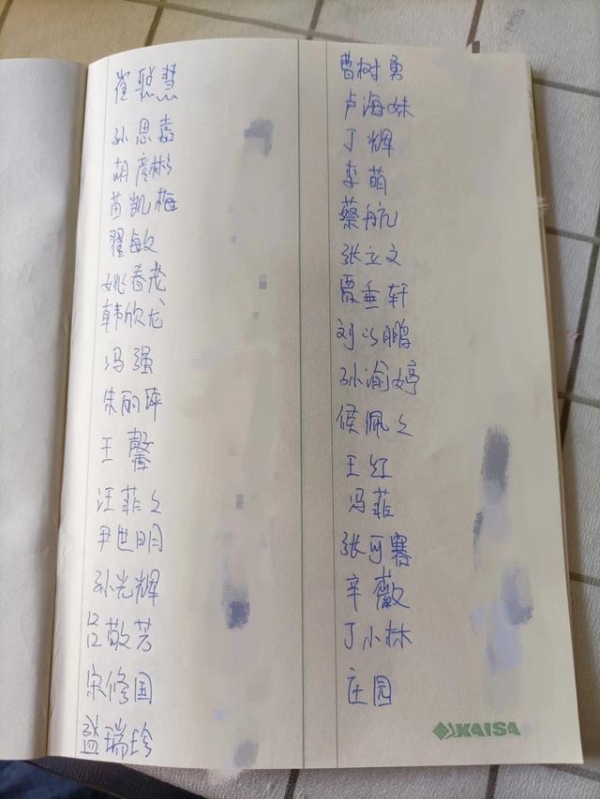 崔聪慧
孙思嘉
胡彦彬
苗凯梅
翟敏
姚春老
韩欣龙
冯强
朱丽萍
王馨
汪菲々
尹世明
孙光辉
吕敬芳
宋修国
瑞珍
曹树勇
卢海妹
丁辉
李萌
蔡航
张立文
贾垂轩
刘鹏
孙渝婷
侯佩々
王红
冯菲
张可
辛薇
丁小林
庄园
KAISA